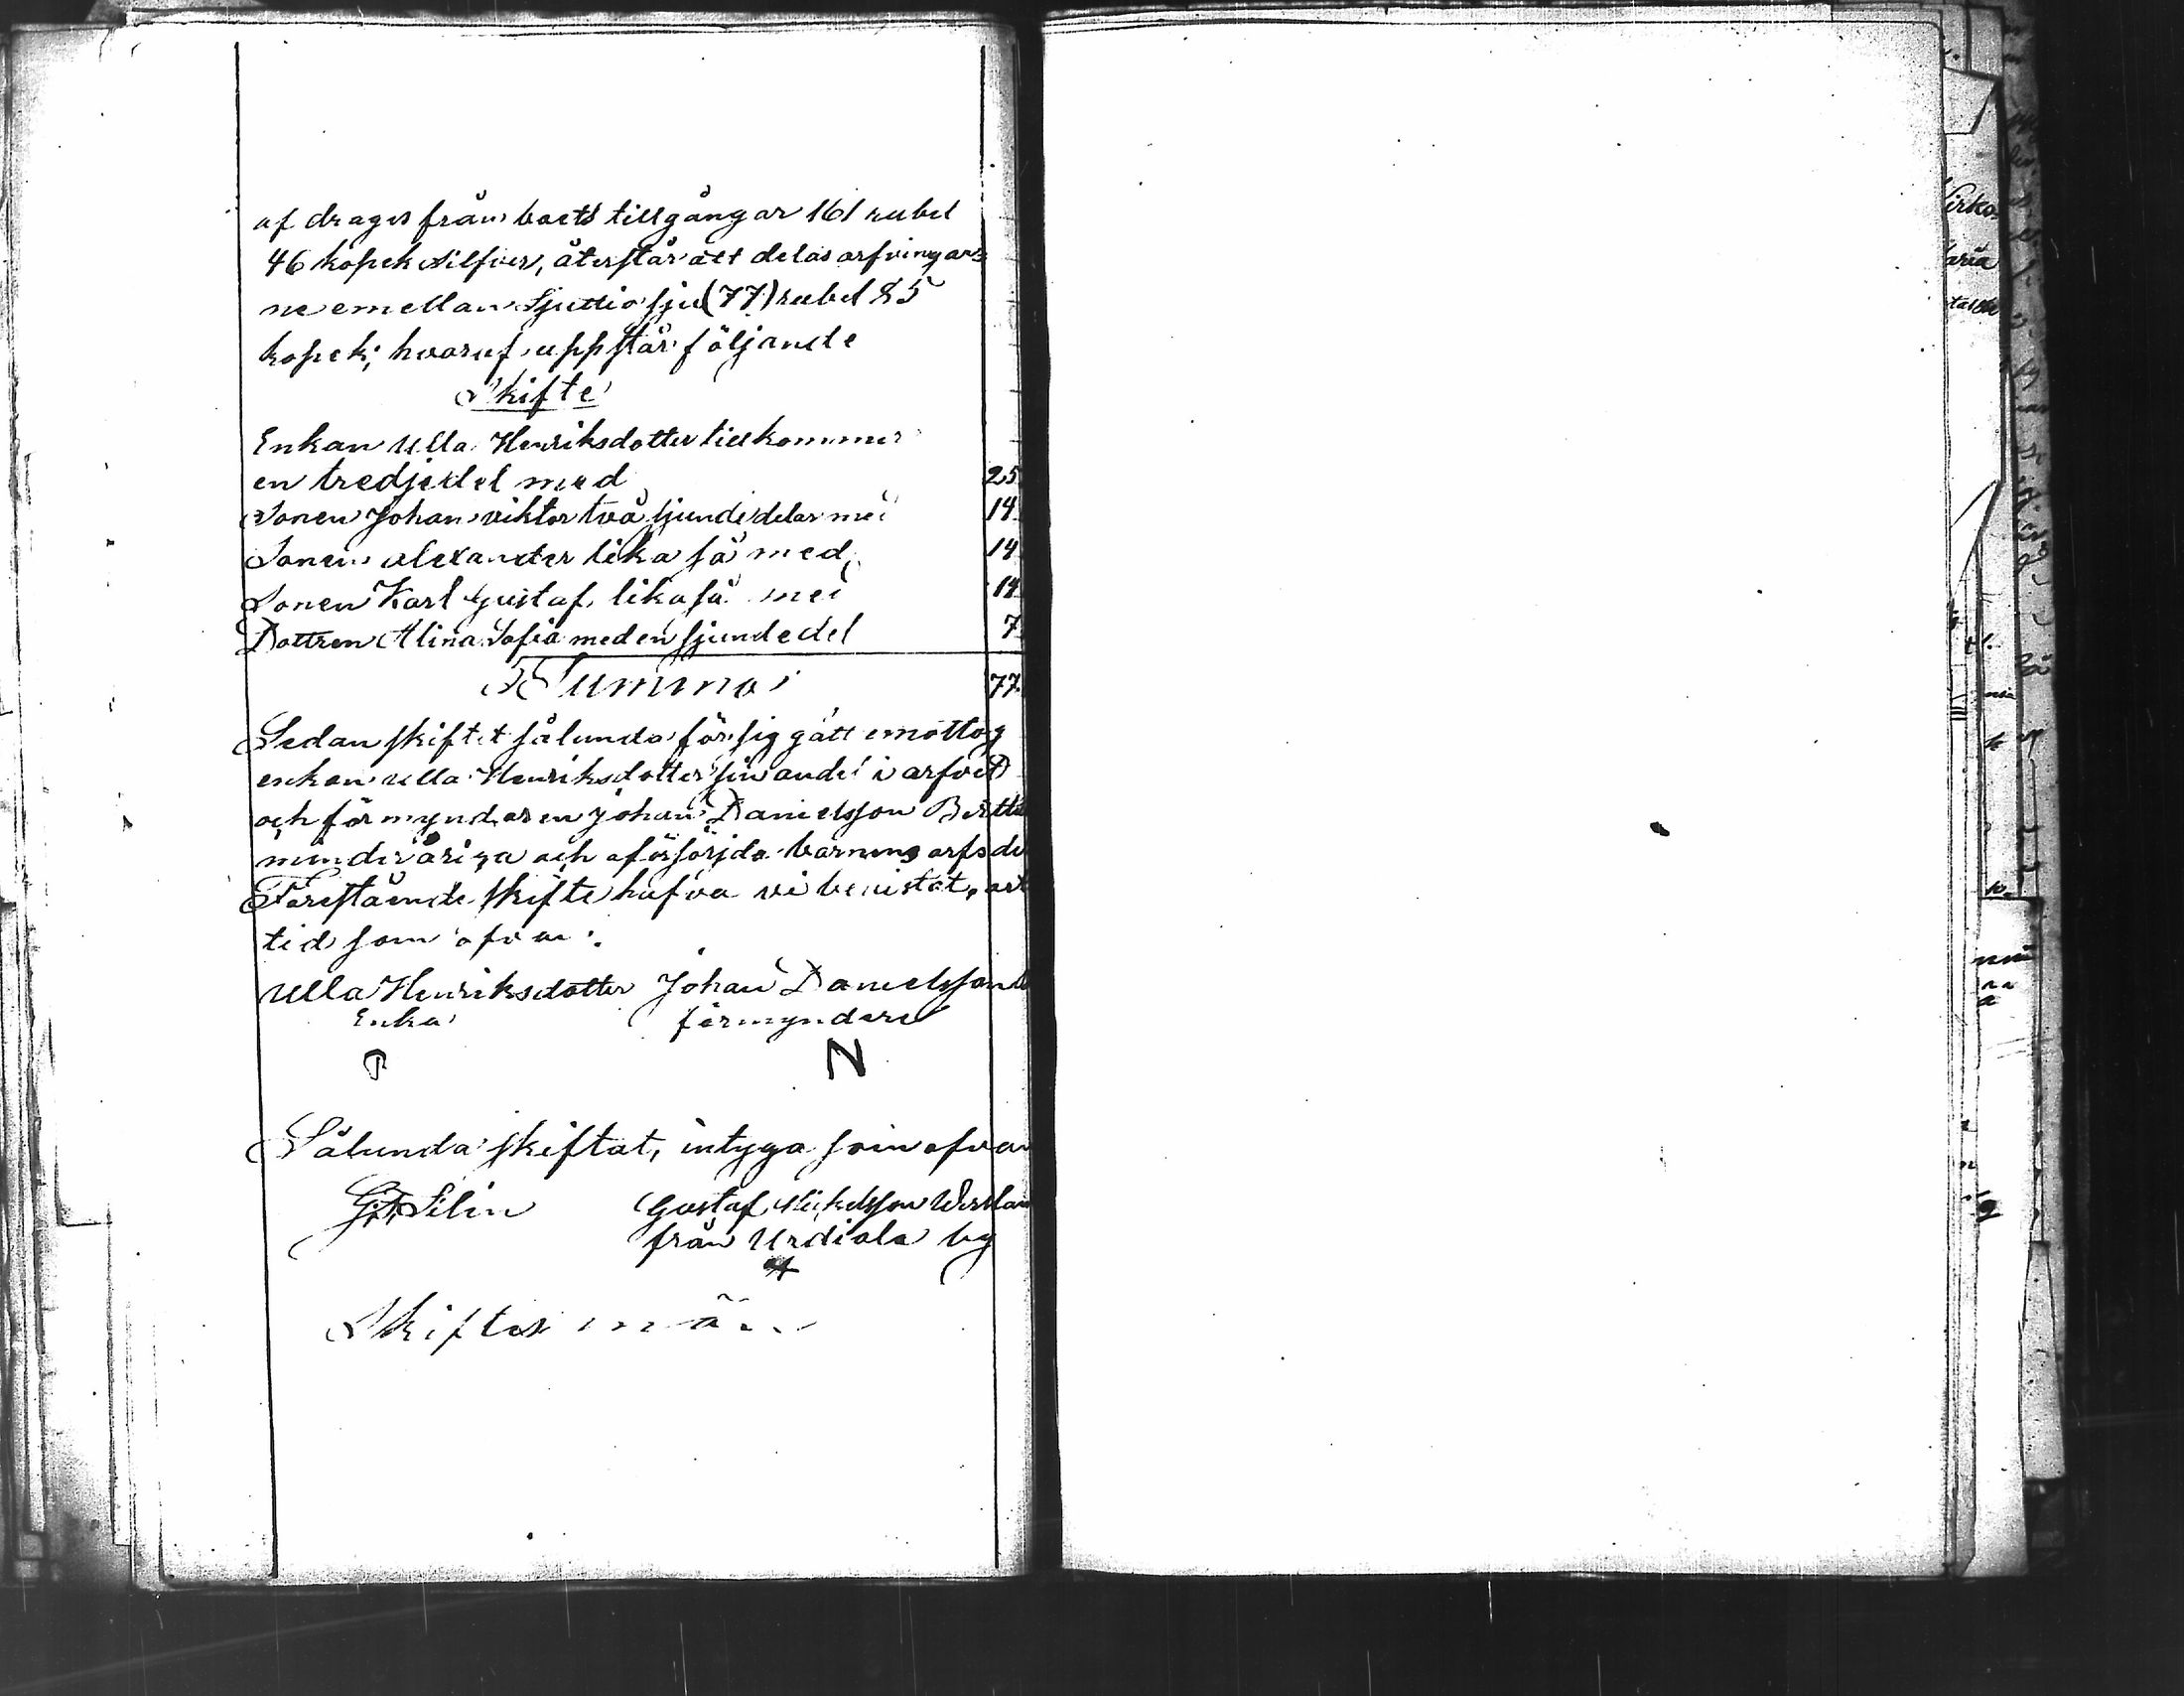 af drages från boets tillgångar 161 rubel
46 kopek silfver, återstår att delas arfvingar=
ne emellan Sjuttio sju (77) rubel 85
kopek; hvaraf uppstår följande
Skifte
Enkan Ulla Henriksdotter tillkommer
en tredjedel med 25
Sonen Johan viktor två sjundedelar med 14
Sonen alexander lika så med 14
Sonen Karl Gustaf lika så med 14
Dottren Alina Sofia med en sjundedel 7
Summa 77
Sedan skiftet sålunda för sig gått emottog
enkan ulla Henriksdotter sin andel i arfvet
och förmyndaren Johan Danielsson
minderåriga och oförsörjda barnens arfsde
Förestående skifte hafva vi bevistat,
tid som ofvan.
Ulla Henriksdotter Johan Danielsson
Enka förmyndare
N
Sålunda skiftat, intyga som ofvan
Silén Gustaf Mickelsson
från Urdiala by
Skiftes män